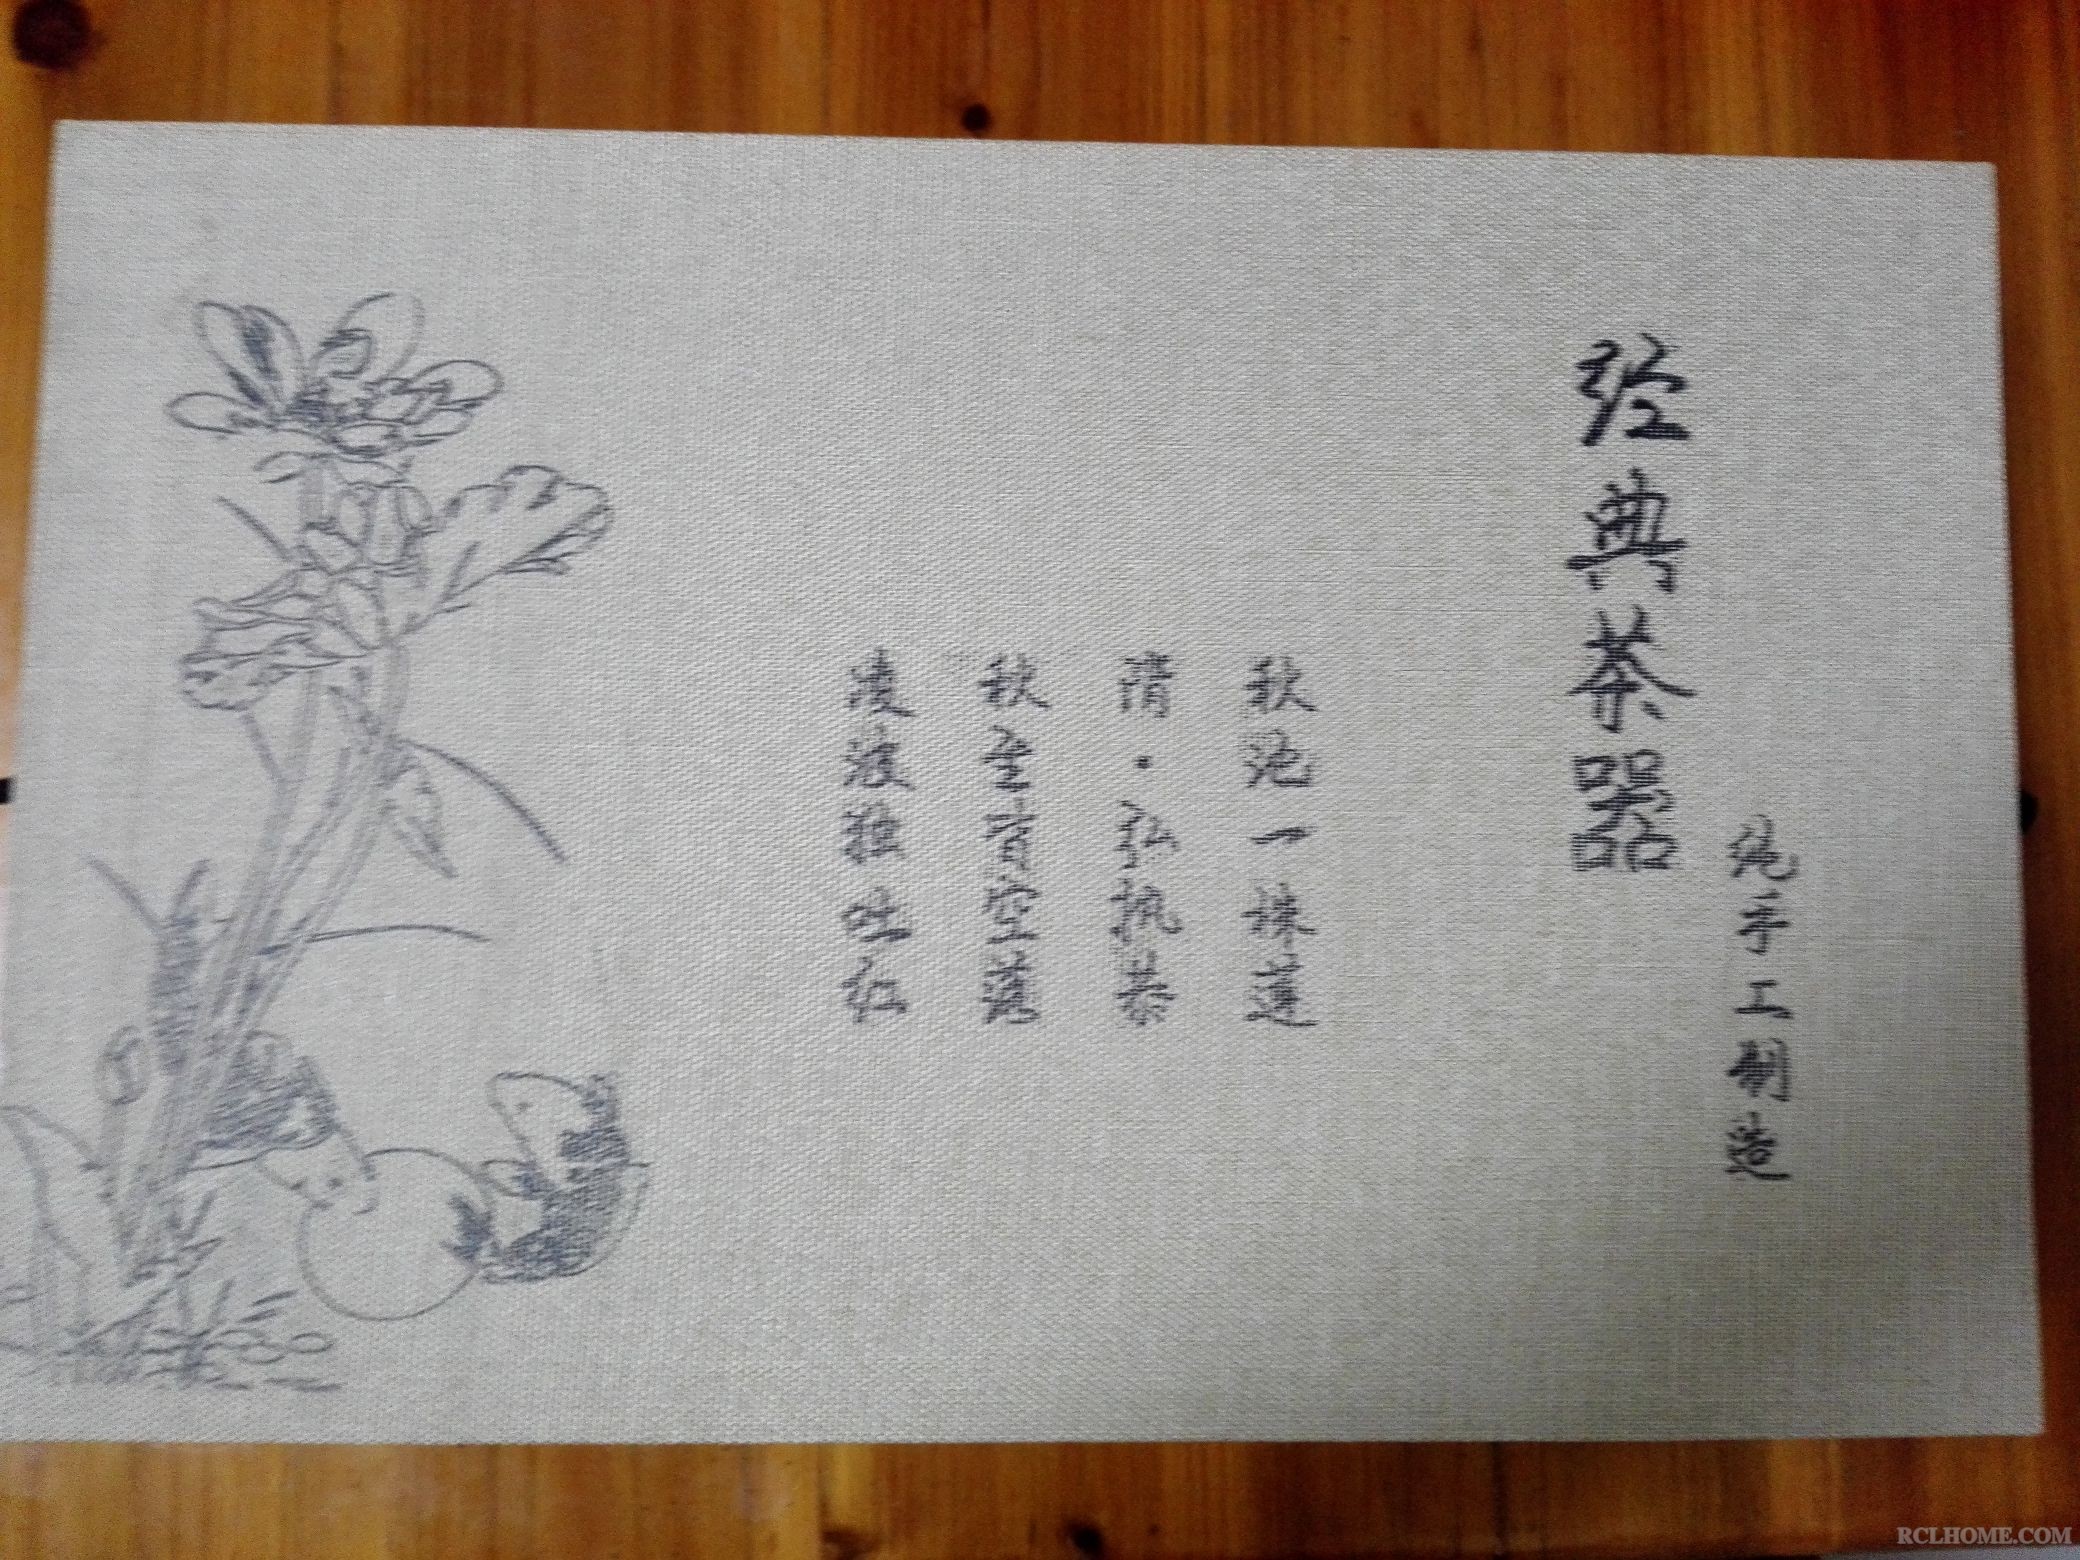 经典茶器
纯手工制造
秋池一株莲
隋·弘执恭
秋至皆空落
凌波独吐红
RCLHOME.COM